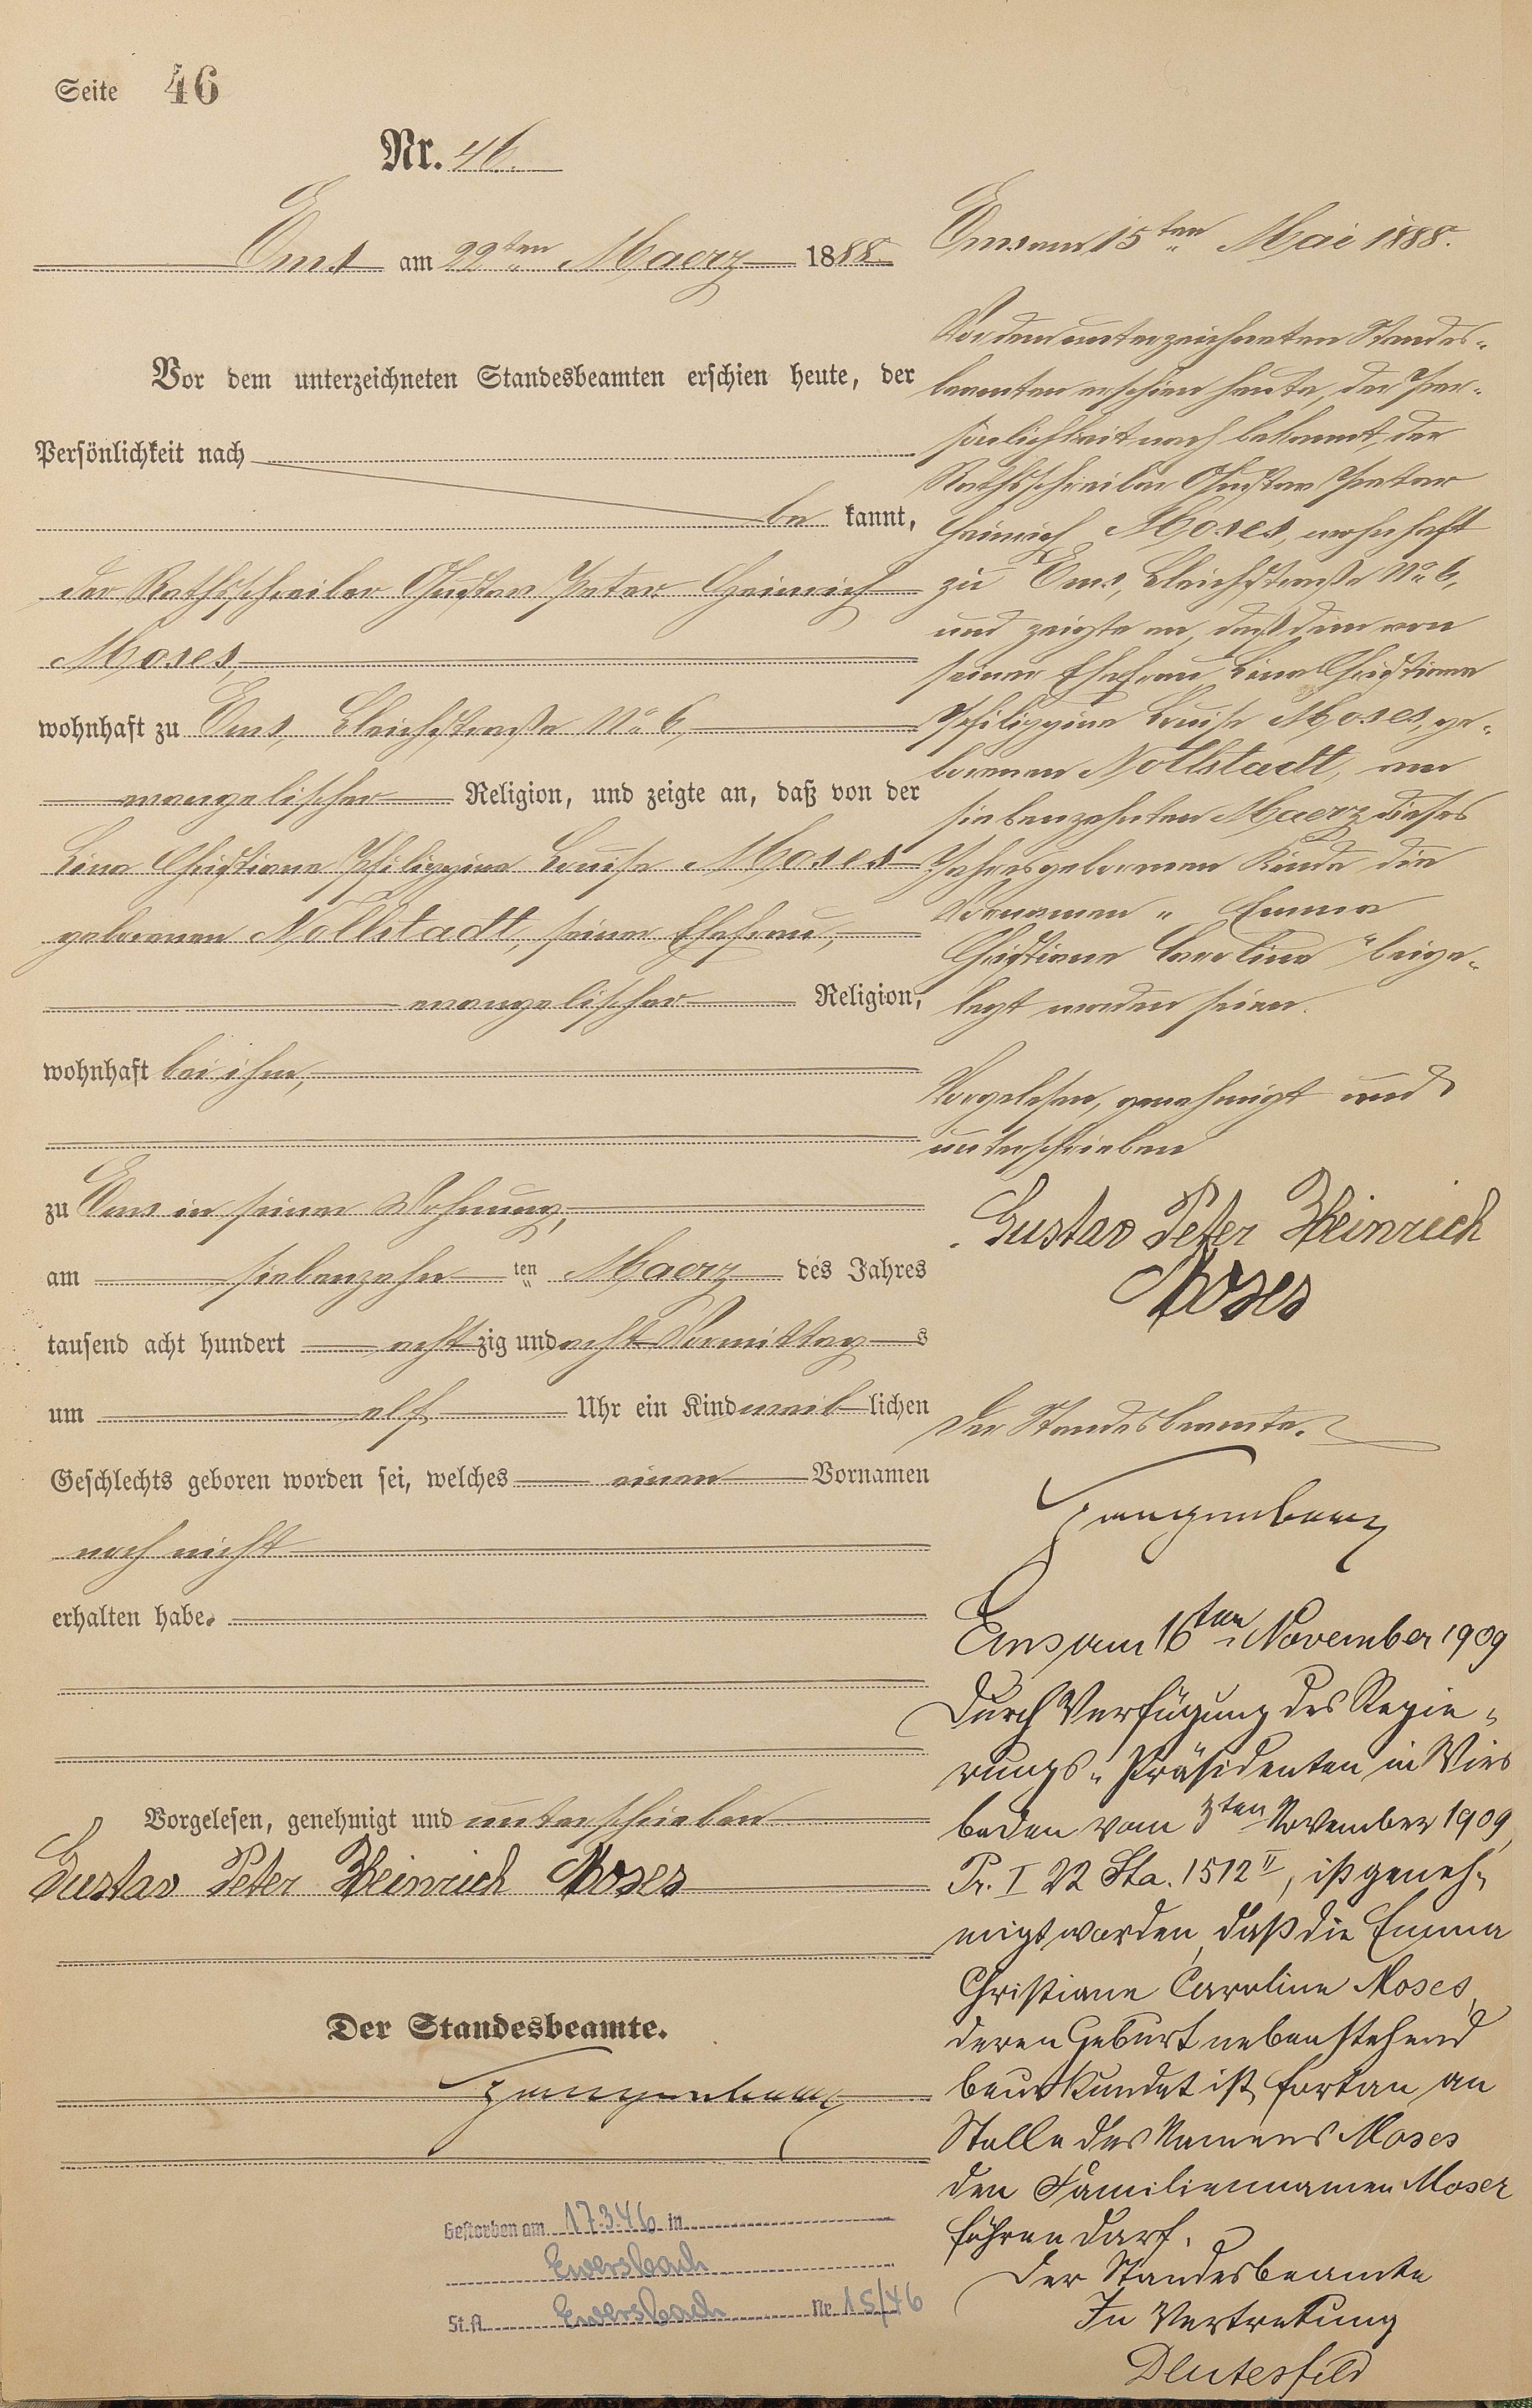 Seite 46
Nr. 46.
Ems am 22ten Maerz 1888.
Vor dem unterzeichneten Standesbeamten erschien heute, der
Persönlichkeit nach
be kannt,
der Rathsschreiber Gustav Peter Heinrich
Moses,
wohnhaft zu Ems, Bleichstraße No 6,
evangelischer Religion, und zeigte an, daß von der
Lina Christiane Philippine Louise Moses
geborenen Nollstadt, seiner Ehefrau,
evangelischer Religion,
wohnhaft bei ihm,
zu Ems in seiner Wohnung,
am siebenzehn ten Maerz des Jahres
tausend acht hundert acht zig und acht Vormittag s
um elf Uhr ein Kind weib lichen
Geschlechts geboren worden sei, welches einen Vornamen
noch nicht
erhalten habe.
Vorgelesen, genehmigt und unterschrieben
Gustav Peter Heinrich Moses
Der Standesbeamte.
Gestorben am 17.3.46 in
Ewersbach
St.A. Ewersbach Nr. 15/46
Ems am 15ten Mai 1888.
Vor dem unterzeichneten Standes-
beamten erschien heute, der Per-
sönlichkeit nach bekannt, der
Rathsschreiber Gustav Peter
Heinrich Moses, wohnhaft
zu Ems, Bleichstraße No 6,
und zeigte an, daß dem von
seiner Ehefrau Lina Christiane
Philippine Louise Moses, ge-
borenen Nollstadt, am
siebenzehnten Maerz dieses
Jahres geborenen Kinde die
Vornamen „Emma
Christiane Caroline" beige-
legt worden seien.
Vorgelesen, genehmigt und
unterschrieben
Gustav Peter Heinrich
Moses
Der Standesbeamte.
Ems am 16ten November 1909
Durch Verfügung des Regie-
rungs-Präsidenten in Wies
baden vom 3ten November 1909,
Pr. I 22 Sta. 1512 II, ist geneh-
migt worden, daß die Emma
Christiane Caroline Moses,
deren Geburt nebenstehend
beurkundet ist, fortan an
Stelle des Namens Moses
den Familiennamen Moser
führen darf.
Der Standesbeamte
In Vertretung